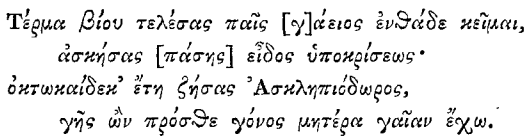 Τέρμα βίου τελέσας παῖς [γ]άειος ἐνθάδε κεῖμαι,
ἀσκήσας [πάσης] εἶδος ὑποκρίσεως·
ὀκτωκαίδεκ' ἔτη ζήσας Ἀσκληπιόδωρος,
γῆς ὢν πρόσθε γόνος μητέρα γαῖαν ἔχω.